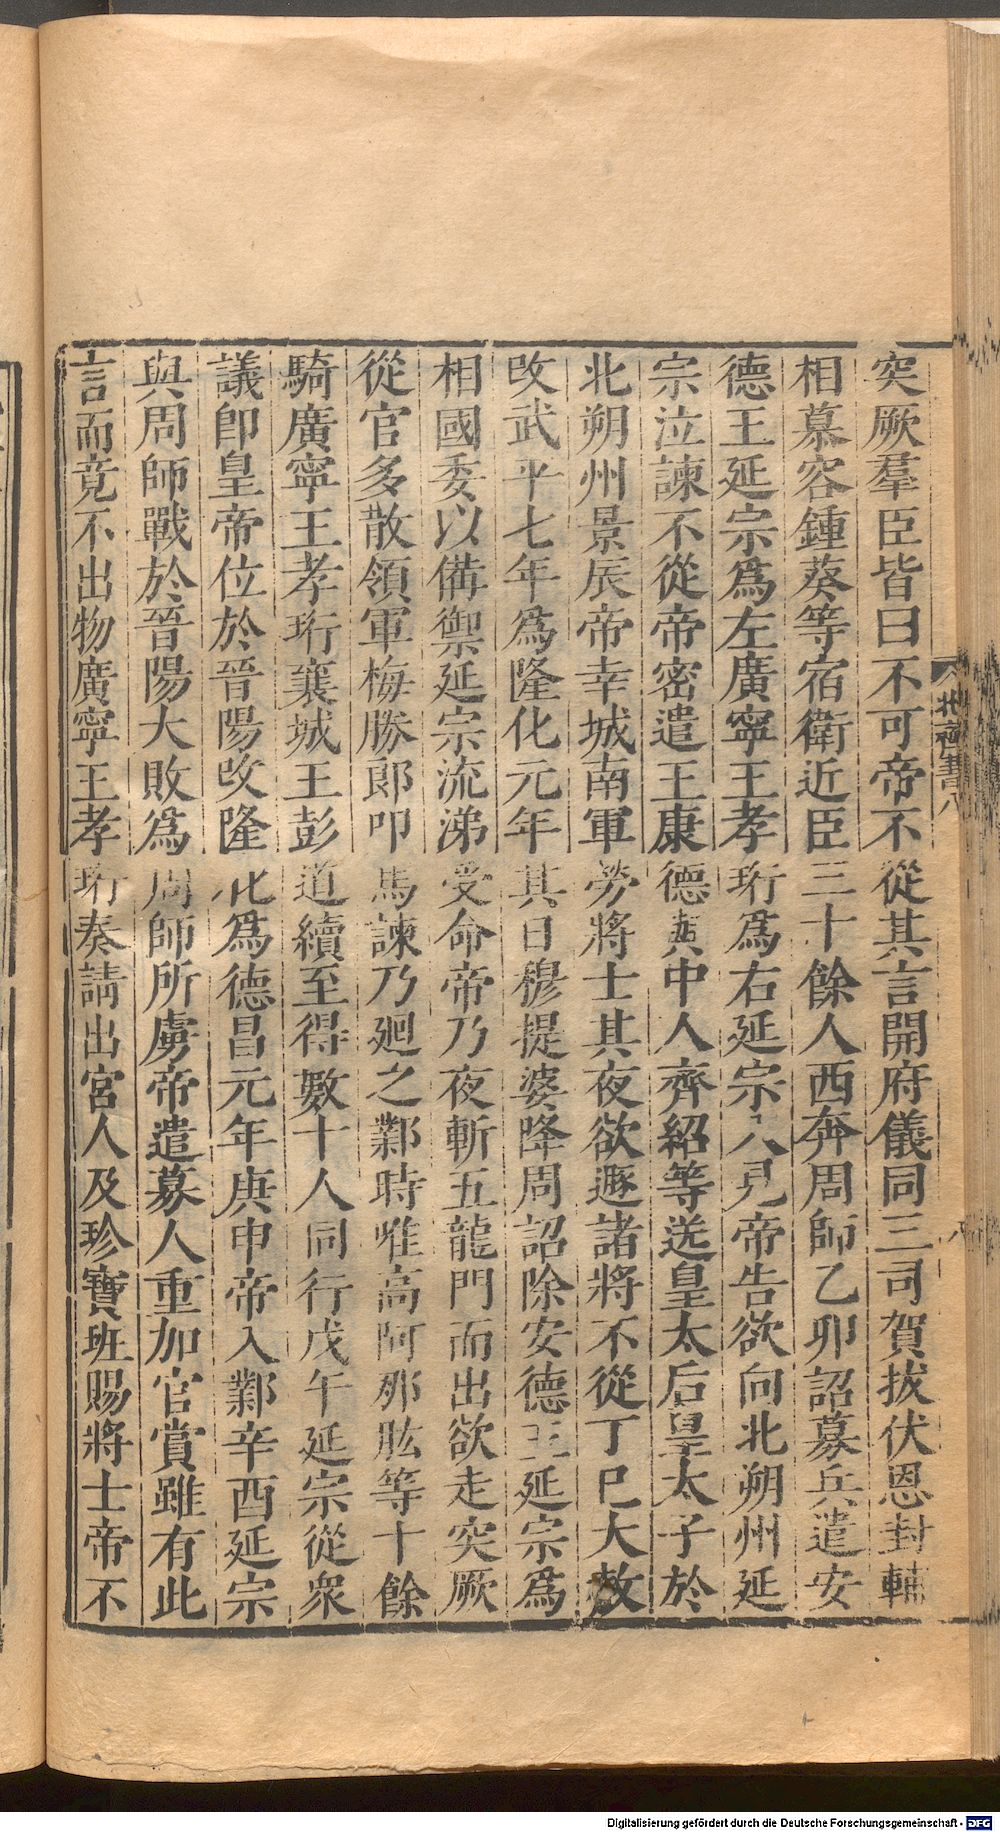 突厥羣臣皆曰不可帝不從其言開府儀同三司賀拔伏恩封輔
相慕容鍾葵等宿衛近臣三十餘人西奔周師乙卯詔募兵遣安
德王延宗爲左廣寧王孝珩爲右延宗入見帝告欲向北朔州延
宗泣諫不從帝密遣王康德與中人齊紹等送皇太后皇太子於
北朔州景辰帝幸城南軍勞將士其夜欲遯諸將不從丁巳大赦
改武平七年爲隆化元年其日穆提婆降周詔除安德王延宗爲
相國委以備禦延宗流涕受命帝乃夜斬五龍門而出欲走突厥
從官多散領軍梅勝郎叩馬諫乃廻之鄴時唯高阿那肱等十餘
騎廣寧王孝珩襄城王彭道續至得數十人同行戊午延宗從衆
議卽皇帝位於晉陽改隆化爲德昌元年庚申帝入鄴辛酉延宗
與周師戰於晉陽大敗爲周師所虜帝遣募人重加官賞雖有此
言而竟不出物廣寧王孝珩奏請出宮人及珍寶班賜將士帝不
北齊書八
八
Digitalisierung gefördert durch die Deutsche Forschungsgemeinschaft - DFG